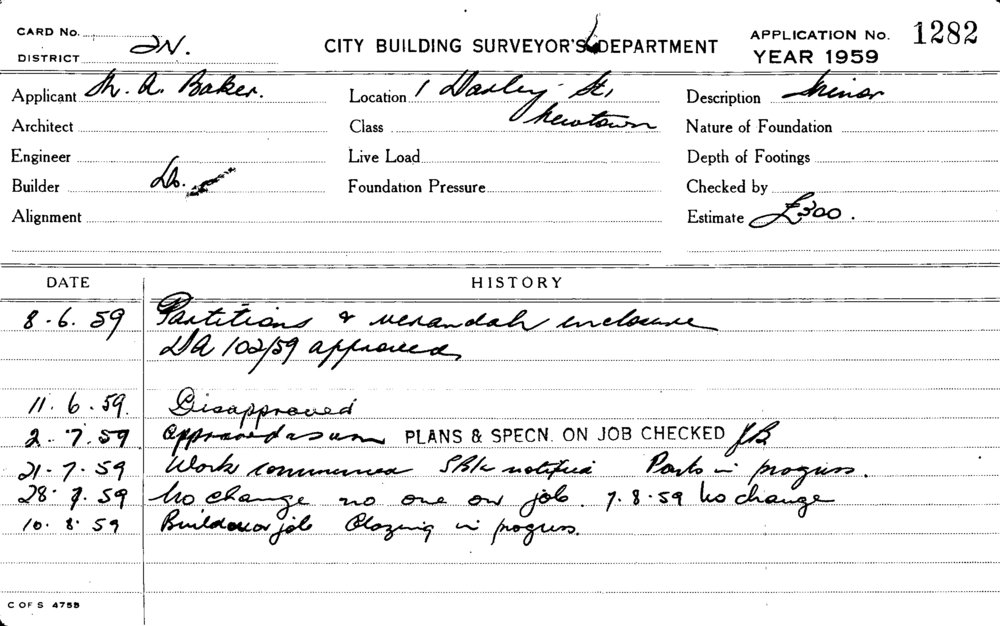 CARD No.
DISTRICT 2N.
CITY BUILDING SURVEYOR'S DEPARTMENT
APPLICATION No. 1282
YEAR 1959
Applicant M. A. Baker. Location 1 Darley St, Description Minor
Architect Class Newtown Nature of Foundation
Engineer Live Load Depth of Footings
Builder Do. Foundation Pressure Checked by
Alignment Estimate £300.
DATE HISTORY
8.6.59 Partitions & verandah enclosure
DA 102/59 approved
11.6.59. Disapproved
2.7.59 approved as sum PLANS & SPECN. ON JOB CHECKED JB
21.7.59 Work commenced notified in progress.
28.7.59 No change no one on job. 7.8.59 No change
10.8.59 Builder on job Glazing in progress.
C OF S 475B